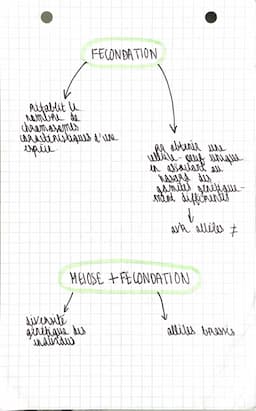 FECONDATION
rétablit le
nombre de
chromosomes
caractéristiques d'une
espèce
obtenir une
cellule-oeuf unique
en associant au
hasard des
gamètes génétique-
ment différentes
avk allèles ≠
MEIOSE + FECONDATION
diversité
génétique des
individus
allèles brassés